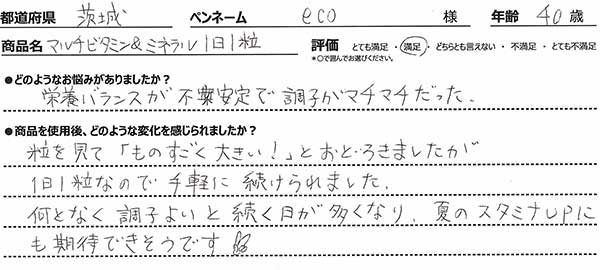 都道府県 茨城 ペンネーム eco 様 年齢 40 歳
商品名 マルチビタミン&ミネラル1日1粒 評価 とても満足・満足・どちらとも言えない・不満足・とても不満足
*〇で囲んでお選びください。
●どのようなお悩みがありましたか?
栄養バランスが不安定で調子がマチマチだった。
●商品を使用後、どのような変化を感じられましたか?
粒を見て「ものすごく大きい!」とおどろきましたが
1日1粒なので手軽に続けられました。
何となく調子よいと続く日が多くなり、夏のスタミナUPに
も期待できそうです